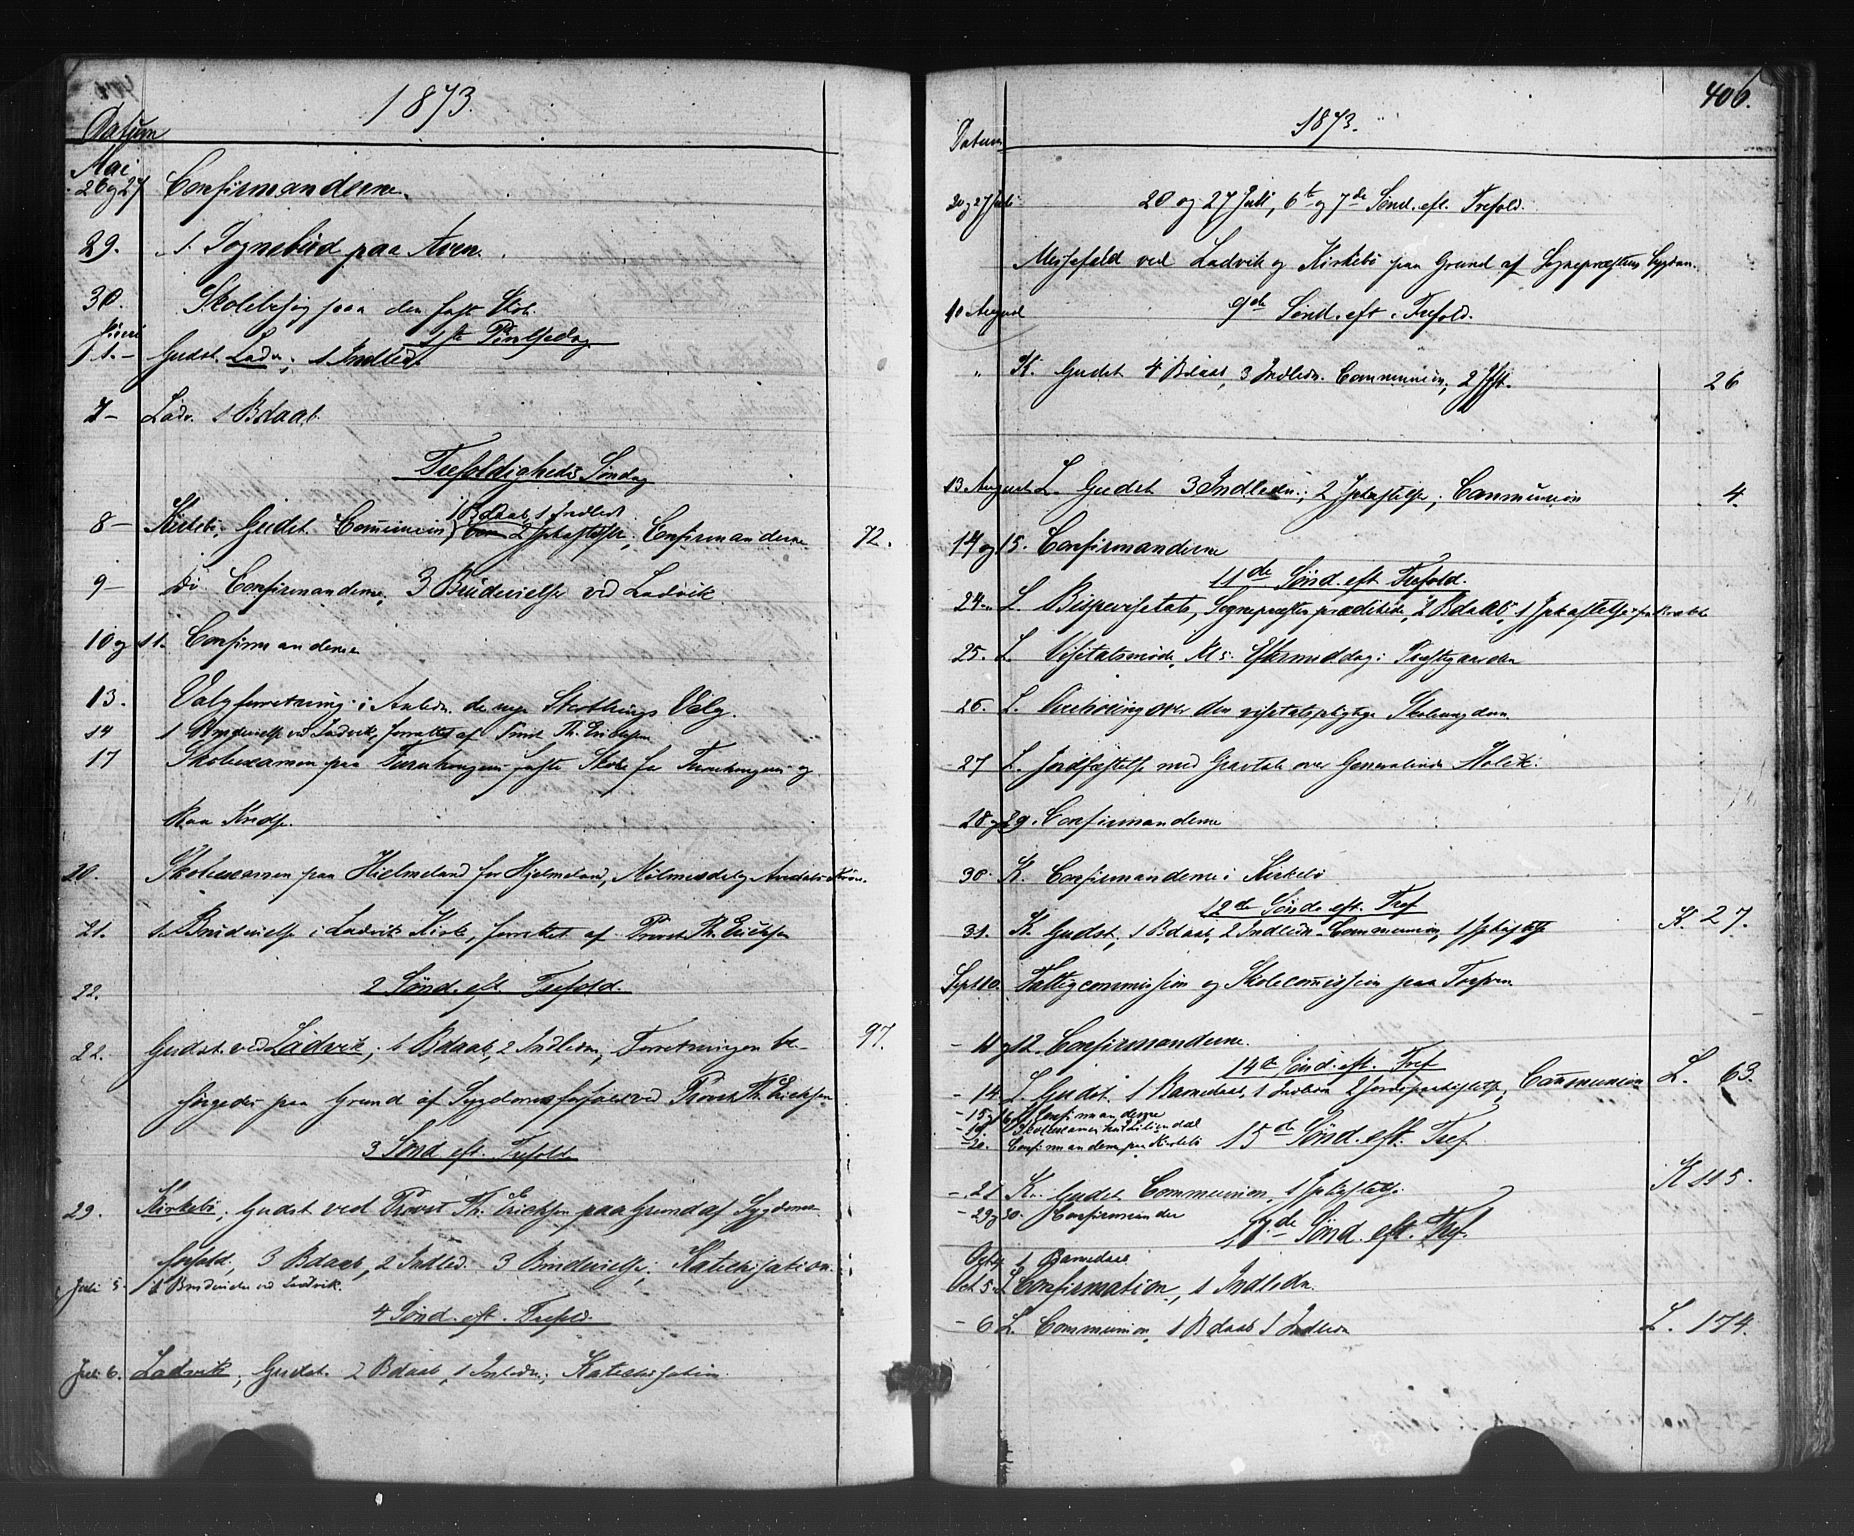 1873.
Datum
Mai
26 og 27 Confirmanderne.
29. 1 Sognebud paa
30. Skolebesøg paa den faste Skole
1ste Pintsedag
Juni 1. – Gudst. Ladv.; 1 Indled.
7 – Ladv. 1 Bdaab
Trefoldigheds Søndag
1 Bdaab, 1 Indledn
8 – Kirkebø, Gudst. Communion, 2 Jphaftelse; Confirmanderne 72.
9 – Do Confirmanderne, 3 Brudevielse ved Ladvik
10 og 11. Confirmanderne
13. Valgforretning i Anledn. de nye Storthings Valg.
14 1 Brudevielse ved Ladvik, forrettet af Provst Th. Erichsen
17 Skoleexamen paa faste Skole for og
20. Skoleexamen paa Hielmeland for Hjelmeland,
21. 1 Brudevielse i Ladvik Kirke, forrettet af Provst Th. Erichsen
22. 2 Sønd. eft. Trefold.
22. Gudst. ved Ladvik, 1 Bdaab, 2 Indledn, Forretningen be- 97.
sørgedes paa Grund af Sygdomsforfald ved Provst Th. Erichsen
3 Sønd eft. Trefold
29. Kirkebø, Gudst ved Provst Th. Erichsen paa Grund af Sygdoms-
forfald, 3 Bdaab, 2 Indled. 3 Brudevielse; Katechisation.
Juli 5. 1 Brudevielse ved Ladvik.
4 Sønd. eft. Trefold.
Juli 6. Ladvik, Gudst. 2 Bdaab, 1 Inledn; Katechisation
406.
1873.
Datum
20 og 27 Juli 20 og 27 Juli, 6te og 7de Sønd. eft. Trefold.
Messefald ved Ladvik og Kirkebø paa Grund af Sognepræstens Sygdom.
10 August 9de Sønd. eft. Trefold.
" K. Gudst 4 Bdaab, 3 Indledn. Communion, 2 Jpft. 26
13 August L. Gudst 3 Indledn; 2 Jphaftelse; Communion 4.
14 og 15. Confirmanderne
11de Sønd. eft Trefold.
24. " L Bispevisetats, Sognepræsten prædikede, 2 Bdaab, 1 Jphaftelse
25. L. Visitatsmøde, Kl 5 Eftermiddag i Præstgaarden
26. L. Overhøring over den visitatspligtige Skoleungdom
27 L. Jordfæstelse med Gravtale over Generalinde Holck.
28 og 29. Confirmanderne
30. K. Confirmanderne i Kirkebø
12de Sønd. eft. Tref
31. K. Gudst, 1 Bdaab, 2 Indledn. Communion, 1 Jphaftelse K. 27.
Sept 10. Fattigcommission og Skolecommission paa
– 11 og 12. Confirmanderne.
14de Sønd. eft. Tref
– 14. L. Gudst. 1 Barnedaab, 1 Indledn 2 Jordspaakastelse, Communion L. 63.
– 15 og 16. Confirmanderne
– 19. Skoleexamen
– 20. Confirmanderne paa Kirkebø 15de Sønd. eft. Tref
– 21 K. Gudst Communion, 1 Jphaftelse K 115.
– 29 og 30. Confirmander
17de Sønd. eft. Tref.
1 Barnedaab
Oct 5. L Confirmation, 1 Indledn.
– 6 L. Communion, 1 Bdaab 1 Indledn L. 174.